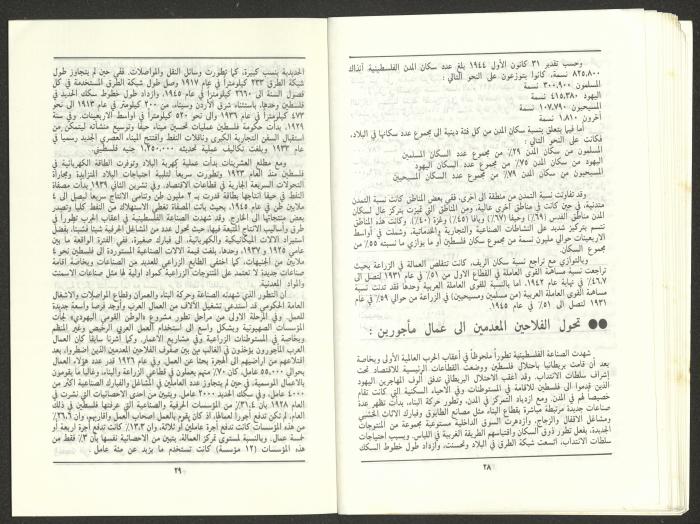 وحسب تقدير ٣١ كانون الأول ١٩٤٤ بلغ عدد سكان المدن الفلسطينية آنذاك
٨٢٥,٨٠٠ نسمة، كانوا يتوزعون على النحو التالي :
المسلمون ٣٠٠,٩٠٠ نسمة
اليهود ٤١٥,٣٨٠ نسمة
المسيحيون ١٠٧,٧٩٠ نسمة
آخرون ١,٨١٠ نسمة
أما فيما يتعلق بنسبة سكان المدن من كل فئة دينية الى مجموع عدد سكانها في البلاد،
فكانت على النحو التالي :
المسلمون من سكان المدن ٢٩٪ من مجموع عدد السكان المسلمين
اليهود من سكان المدن ٧٥٪ من مجموع عدد السكان اليهود
المسيحيون من سكان المدن ٧٩٪ من مجموع عدد السكان المسيحيين
وقد تفاوتت نسبة التمدن من منطقة الى أخرى، ففي بعض المناطق كانت نسبة التمدن
متدنية، في حين كانت في مناطق أخرى عالية. ومن المناطق التي تميزت بتركز عال لسكان
المدن مناطق القدس (٦٩٪) وحيفا (٦٧٪) ويافا (٤٥٪) وغزة (٤٠٪). وكانت هذه المناطق
تتسم بتركيز شديد على النشاطات الصناعية والتجارية والخدماتية. وشملت في أواسط
الاربعينات حوالي مليون نسمة من مجموع سكان فلسطين أو ما يوازي ما نسبته ٥٥٪ من
مجموع السكان.
وبالتوازي مع تراجع نسبة سكان الريف، كانت تتقلص العمالة في الزراعة بحيث
تراجعت نسبة مساهمة القوى العاملة في القطاع الاول من ٥١٪ في عام ١٩٣١ لتصل الى
٤٦,٧٪ في نهاية عام ١٩٤٢. اما بالنسبة للقوى العاملة العربية وحدها فقد تدنت نسبة
مساهمة القوى العاملة العربية (من مسلمين ومسيحيين) في الزراعة من حوالي ٥٩٪ في عام
١٩٣١ لتصل الى ٥١٪ في عام ١٩٤٥.
●● تحول الفلاحين المعدمين الى عمال مأجورين :
شهدت الصناعة الفلسطينية تطوراً ملحوظاً في أعقاب الحرب العالمية الأولى وبخاصة
بعد أن قامت بريطانيا باحتلال فلسطين ووضعت القطاعات الرئيسية للاقتصاد تحت
إشراف سلطات الانتداب. وقد أعقب الاحتلال البريطاني تدفق آلوف المهاجرين اليهود
الذين قدموا الى فلسطين للاقامة في المستوطنات وفي الأحياء السكنية التي كانت تقام
خصيصاً لهم في المدن. ومع ازدياد التمركز في المدن، وتطور حركة البناء، بدأت تظهر عدة
صناعات جديدة مرتبطة مباشرة بقطاع البناء مثل مصانع الطابوق وفبارك الاثاث الخشبي
ومشاغل الاقفال والزجاج. وازدهرت السوق الداخلية مستوعبة مجموعة من المنتوجات
الجديدة، بفعل تطور ذوق السكان واقتباسهم الطريقة الغربية في اللباس. وبسبب احتياجات
سلطات الانتداب، اتسعت شبكة الطرق في البلاد وتحسنت، وازداد طول خطوط السكك
٢٨
الحديدية بنسب كبيرة، كما تطورت وسائل النقل والمواصلات. ففي حين لم يتجاوز طول
شبكة الطرق ٢٣٣ كيلومتراً في عام ١٩١٧ وصل طول شبكة الطرق المستخدمة في كل
فصول السنة الى ٢٦٦٠ كيلومتراً في عام ١٩٤٥. وازداد طول خطوط سكك الحديد في
فلسطين وحدها، باستثناء شرق الأردن وسيناء، من ٢٠٠ كيلومتر في عام ١٩١٣ الى نحو
٤٧٣ كيلومتراً في عام ١٩٣٦ والى نحو ٥٢٠ كيلومتراً في أواسط الاربعينات. وفي سنة
١٩٢٩، بدأت حكومة فلسطين عمليات تحسين ميناء حيفا وتوسيع منشآته ليتمكن من
استقبال السفن التجارية الكبرى وناقلات النفط وافتتح الميناء العصري الجديد رسمياً في
عام ١٩٣٣ وبلغت تكاليف عملية تحديثه ١,٢٥٠,٠٠٠ جنيه فلسطيني.
ومع مطلع العشرينات بدأت عملية كهربة البلاد وتوفرت الطاقة الكهربائية في
فلسطين منذ العام ١٩٢٣ وتطورت سريعاً لتلبية احتياجات البلاد المتزايدة ومجاراة
التحولات السريعة الجارية في قطاعات الاقتصاد. وفي تشرين الثاني ١٩٣٩ بدأت مصفاة
النفط في حيفا انتاجها بطاقة قدرت بـ ٢ مليون طن وتنامى الانتاج سريعاً ليصل الى ٤
ملايين طن في عام ١٩٤٥، بحيث باتت المصفاة تغطي الاستهلاك من النفط كلياً وتصدر
بعض منتجاتها الى الخارج. وقد شهدت الصناعة الفلسطينية في أعقاب الحرب تطوراً في
طرق وأساليب الانتاج المتبعة فيها، حيث تحول عدد من المشاغل الحرفية شيئاً فشيئاً، بفضل
استيراد الالات الميكانيكية والكهربائية، الى فبارك صغيرة. ففي الفترة الواقعة ما بين
عامي ١٩٢٥ و١٩٣٧، وحدها، بلغت قيمة الالات الصناعية المستوردة الى فلسطين نحو ٤
ملايين من الجنيهات. كما اختفى الطابع الزراعي للعديد من الصناعات وبخاصة اقامة
صناعات جديدة لا تعتمد على المنتوجات الزراعية كمواد أولية لها مثل صناعات الاسمنت
والمواد المعدنية.
ان التطور الذي شهدته الصناعة وحركة البناء والعمران وقطاع المواصلات والاشغال
العامة الحكومي قد استدعى تشغيل الالاف من العمال العرب وأوجد فرصاً واسعة جديدة
للعمل. وفي المرحلة الاولى من مراحل تطور مشروع «الوطن القومي اليهودي» لجأت
المؤسسات الصهيونية وبشكل واسع الى استخدام العمل العربي الرخيص وغير المنظم
وبخاصة في المستوطنات الزراعية وفي مشاريع الاعمار. وكما أشرنا سابقاً كان العمال
العرب المأجورون يؤخذون في الغالب من بين صفوف الفلاحين المعدمين الذين اضطروا، بعد
اقتلاعهم من اراضيهم الى الهجرة بحثاً عن العمل. وفي عام ١٩٢٦ قدر عدد هؤلاء العمال
بحوالي ٥٥,٠٠٠ عامل، كان ٧٠٪ منهم يعملون في قطاعي الزراعة والبناء، وغالبا ما يقومون
بالاعمال الموسمية، في حين لم يتجاوز عدد العاملين في المشاغل والفبارك الصناعية أكثر من
٤٠٠٠ عامل، وفي سكك الحديد ٢٠٠٠ عامل. ويتبين من احدى الاحصائيات التي نشرت في
العام ١٩٢٨ بأن ٣١,٤٪ من المؤسسات الحرفية والصناعية التي عرفتها فلسطين في ذلك
العام، لم تكن تدفع أجوراً لعمالها، اذ كان يقوم بالعمل اصحاب العمل وأقاربهم، وان ٣٦,٦٪
من هذه المؤسسات كانت تدفع أجرة عاملين أو ثلاثة، وان ١٣,٣٪ كانت تدفع أجرة أربعة أو
خمسة عمال. وبالنسبة لمستوى تركز العمالة، يتبين من الاحصائية نفسها بأن ٣٪ فقط من
هذه المؤسسات (١٢ مؤسسة) كانت تستخدم ما يزيد عن مئة عامل.
٢٩